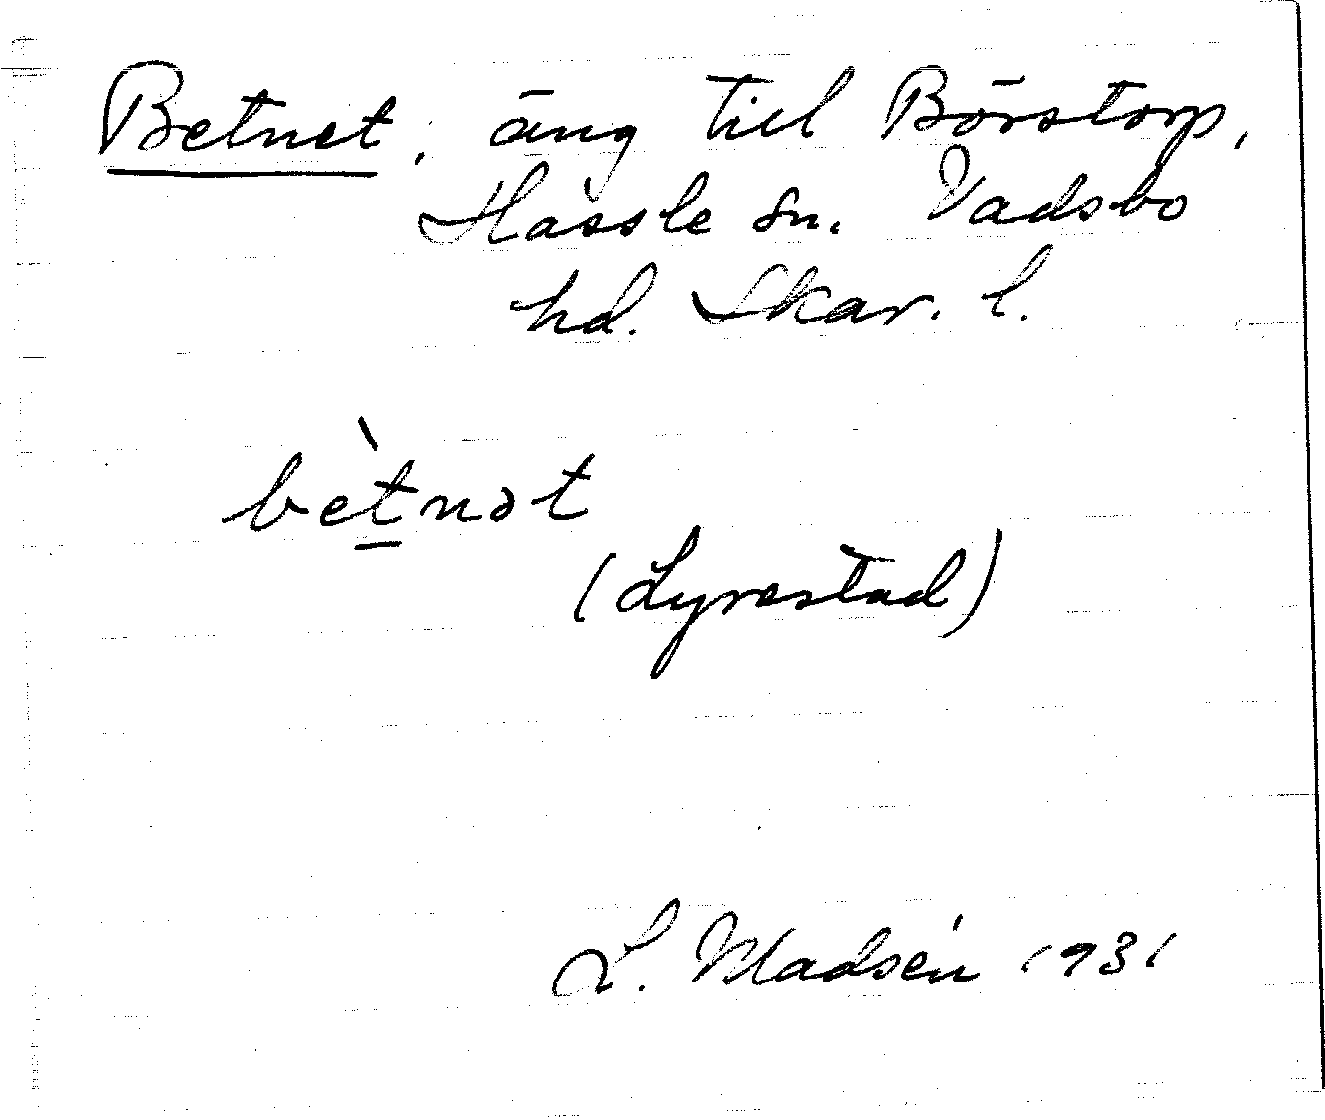 Betnet, äng till Börstorp,
Hassle sn. Vadsbo
hd. Skar. l.
bèt̲nət
(Lyrestad)
L. Madsén 1931